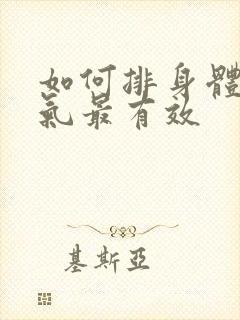 如何排身體
氣最有效
基斯亞